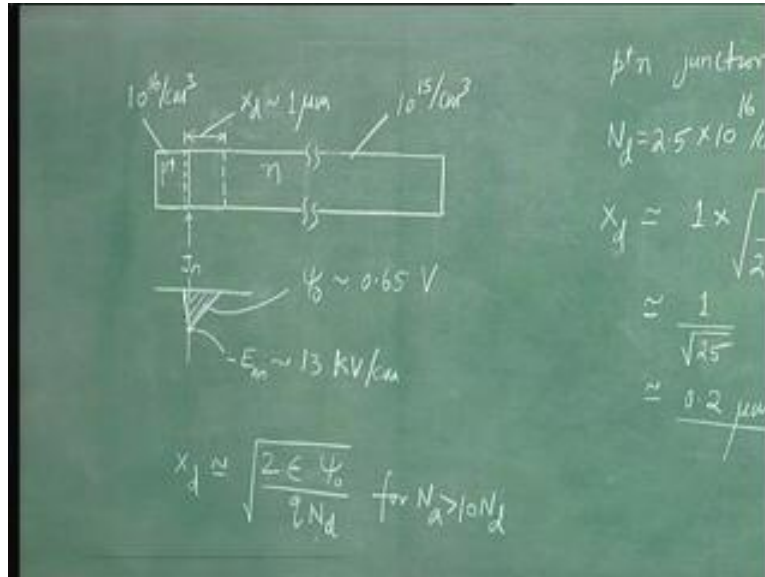 10^16/cm^3
x_d ~ 1 μm
10^15/cm^3
p+
n
J_n
ψ_0 ~ 0.65 V
-E_m ~ 13 kV/cm
x_d ≃ √(2 ε ψ_0 / q N_d) for N_a > 10 N_d
p+n junction
N_d = 2.5 × 10^16 /c
x_d ≃ 1 × √
≃ 1 / √25
≃ 0.2 μm